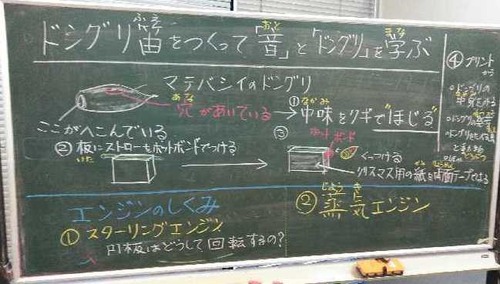 ドングリ笛をつくって「音」と「ドングリ」を学ぶ
マテバシイのドングリ
穴があいている
ここがへこんでいる
① 中味をクギで"ほじる"
② 板にストローをホットボンドでつける
③
ホットボンド
くっつける
クリスマス用の紙を両面テープではる
④ プリント
エンジンのしくみ
① スターリングエンジン
円板はどうして回転するの?
② 蒸気エンジン